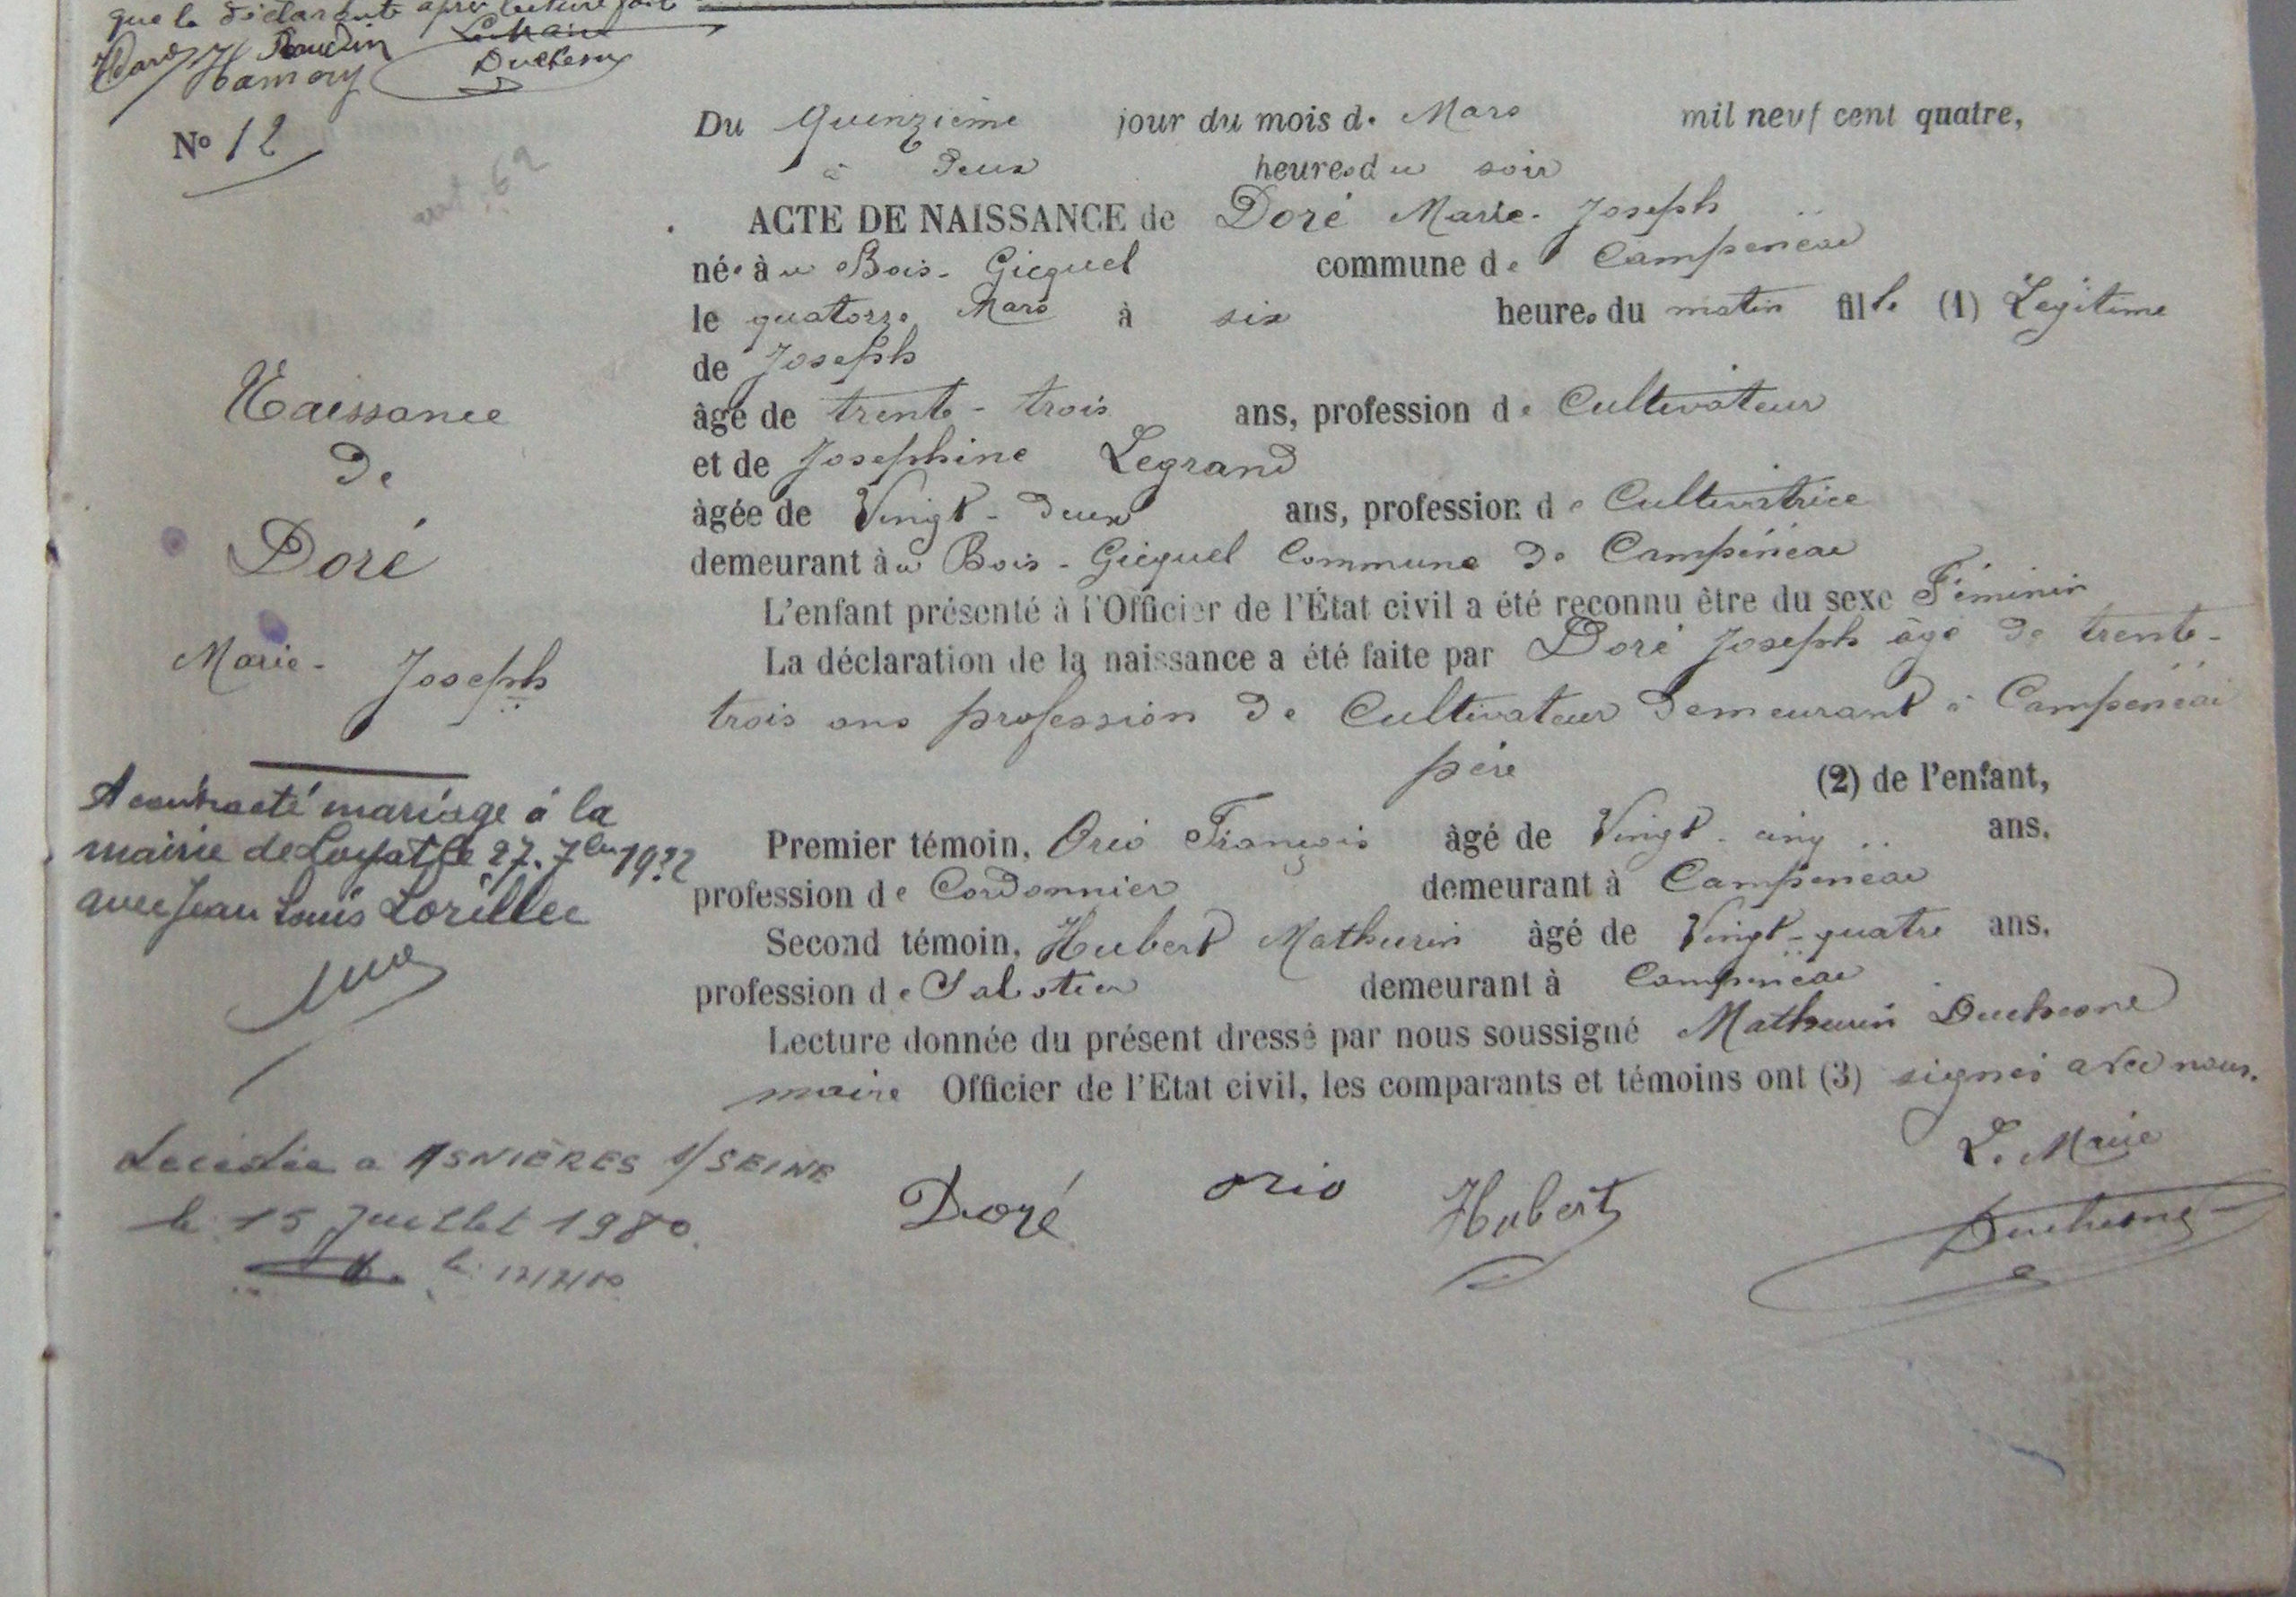 que le déclarante après lecture fait
Le Maire
Hamory
Duchesne
No 12
Du quinzième jour du mois de Mars mil neuf cent quatre,
à Deux heures du soir
ACTE DE NAISSANCE de Doré Marie-Joseph
née àu Bois-Gicquel commune de Campénéac
le quatorze Mars à six heures du matin fille (1) Légitime
de Joseph
âgé de trente-trois ans, profession de Cultivateur
et de Joséphine Legrand
âgée de Vingt-deux ans, profession de Cultivatrice
demeurant àu Bois-Gicquel Commune de Campénéac
L'enfant présenté à l'Officier de l'État civil a été reconnu être du sexe Féminin
La déclaration de la naissance a été faite par Doré Joseph âgé de trente-
trois ans profession de Cultivateur demeurant à Campénéac
père (2) de l'enfant,
Premier témoin, Orio François âgé de Vingt-cinq ans.
profession de Cordonnier demeurant à Campénéac
Second témoin, Hubert Mathurin âgé de Vingt-quatre ans.
profession de Sabotier demeurant à Campénéac
Lecture donnée du présent dressé par nous soussigné Mathurin Duchesne
maire Officier de l'Etat civil, les comparants et témoins ont (3) signés avec nous.
Le Maire
Doré Orio Hubert Duchesne
Naissance
De
Doré
Marie-Joseph
A contracté mariage à la
mairie de Loyat le 27. 7bre 1922
avec Jean Louis Lorillec
Décédée à ASNIÈRES s/SEINE
le 15 Juillet 1980